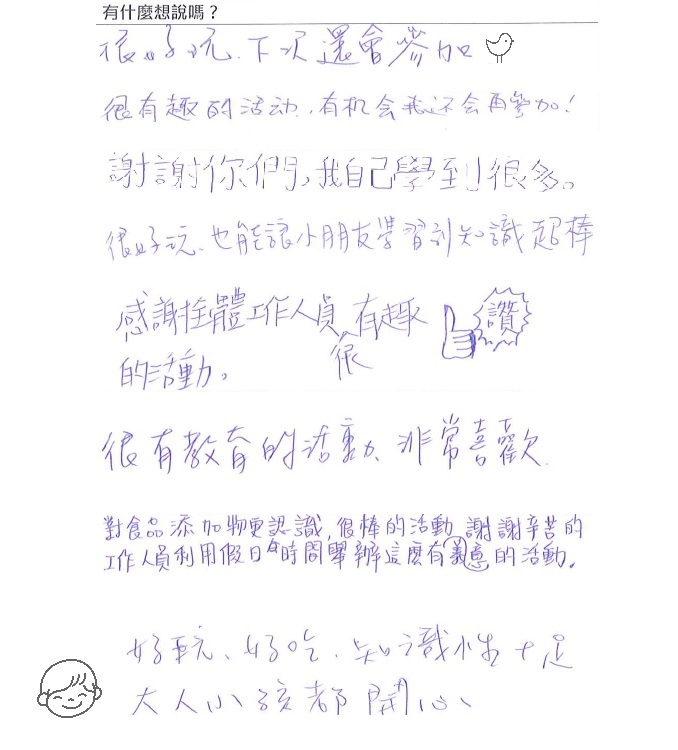 有什麼想說嗎？
很好玩、下次還會參加
很有趣的活动，有机会我还会再參加！
謝謝你們，我自己學到很多。
很好玩、也能讓小朋友學習到知識超棒
感謝全體工作人員，很有趣 讚
的活動。
很有教育的活動、非常喜歡.
對食品添加物更認識，很棒的活動，謝謝辛苦的
工作人員利用假日的時間舉辦這麼有意義的活動。
好玩、好吃、知識性十足
大人小孩都開心、